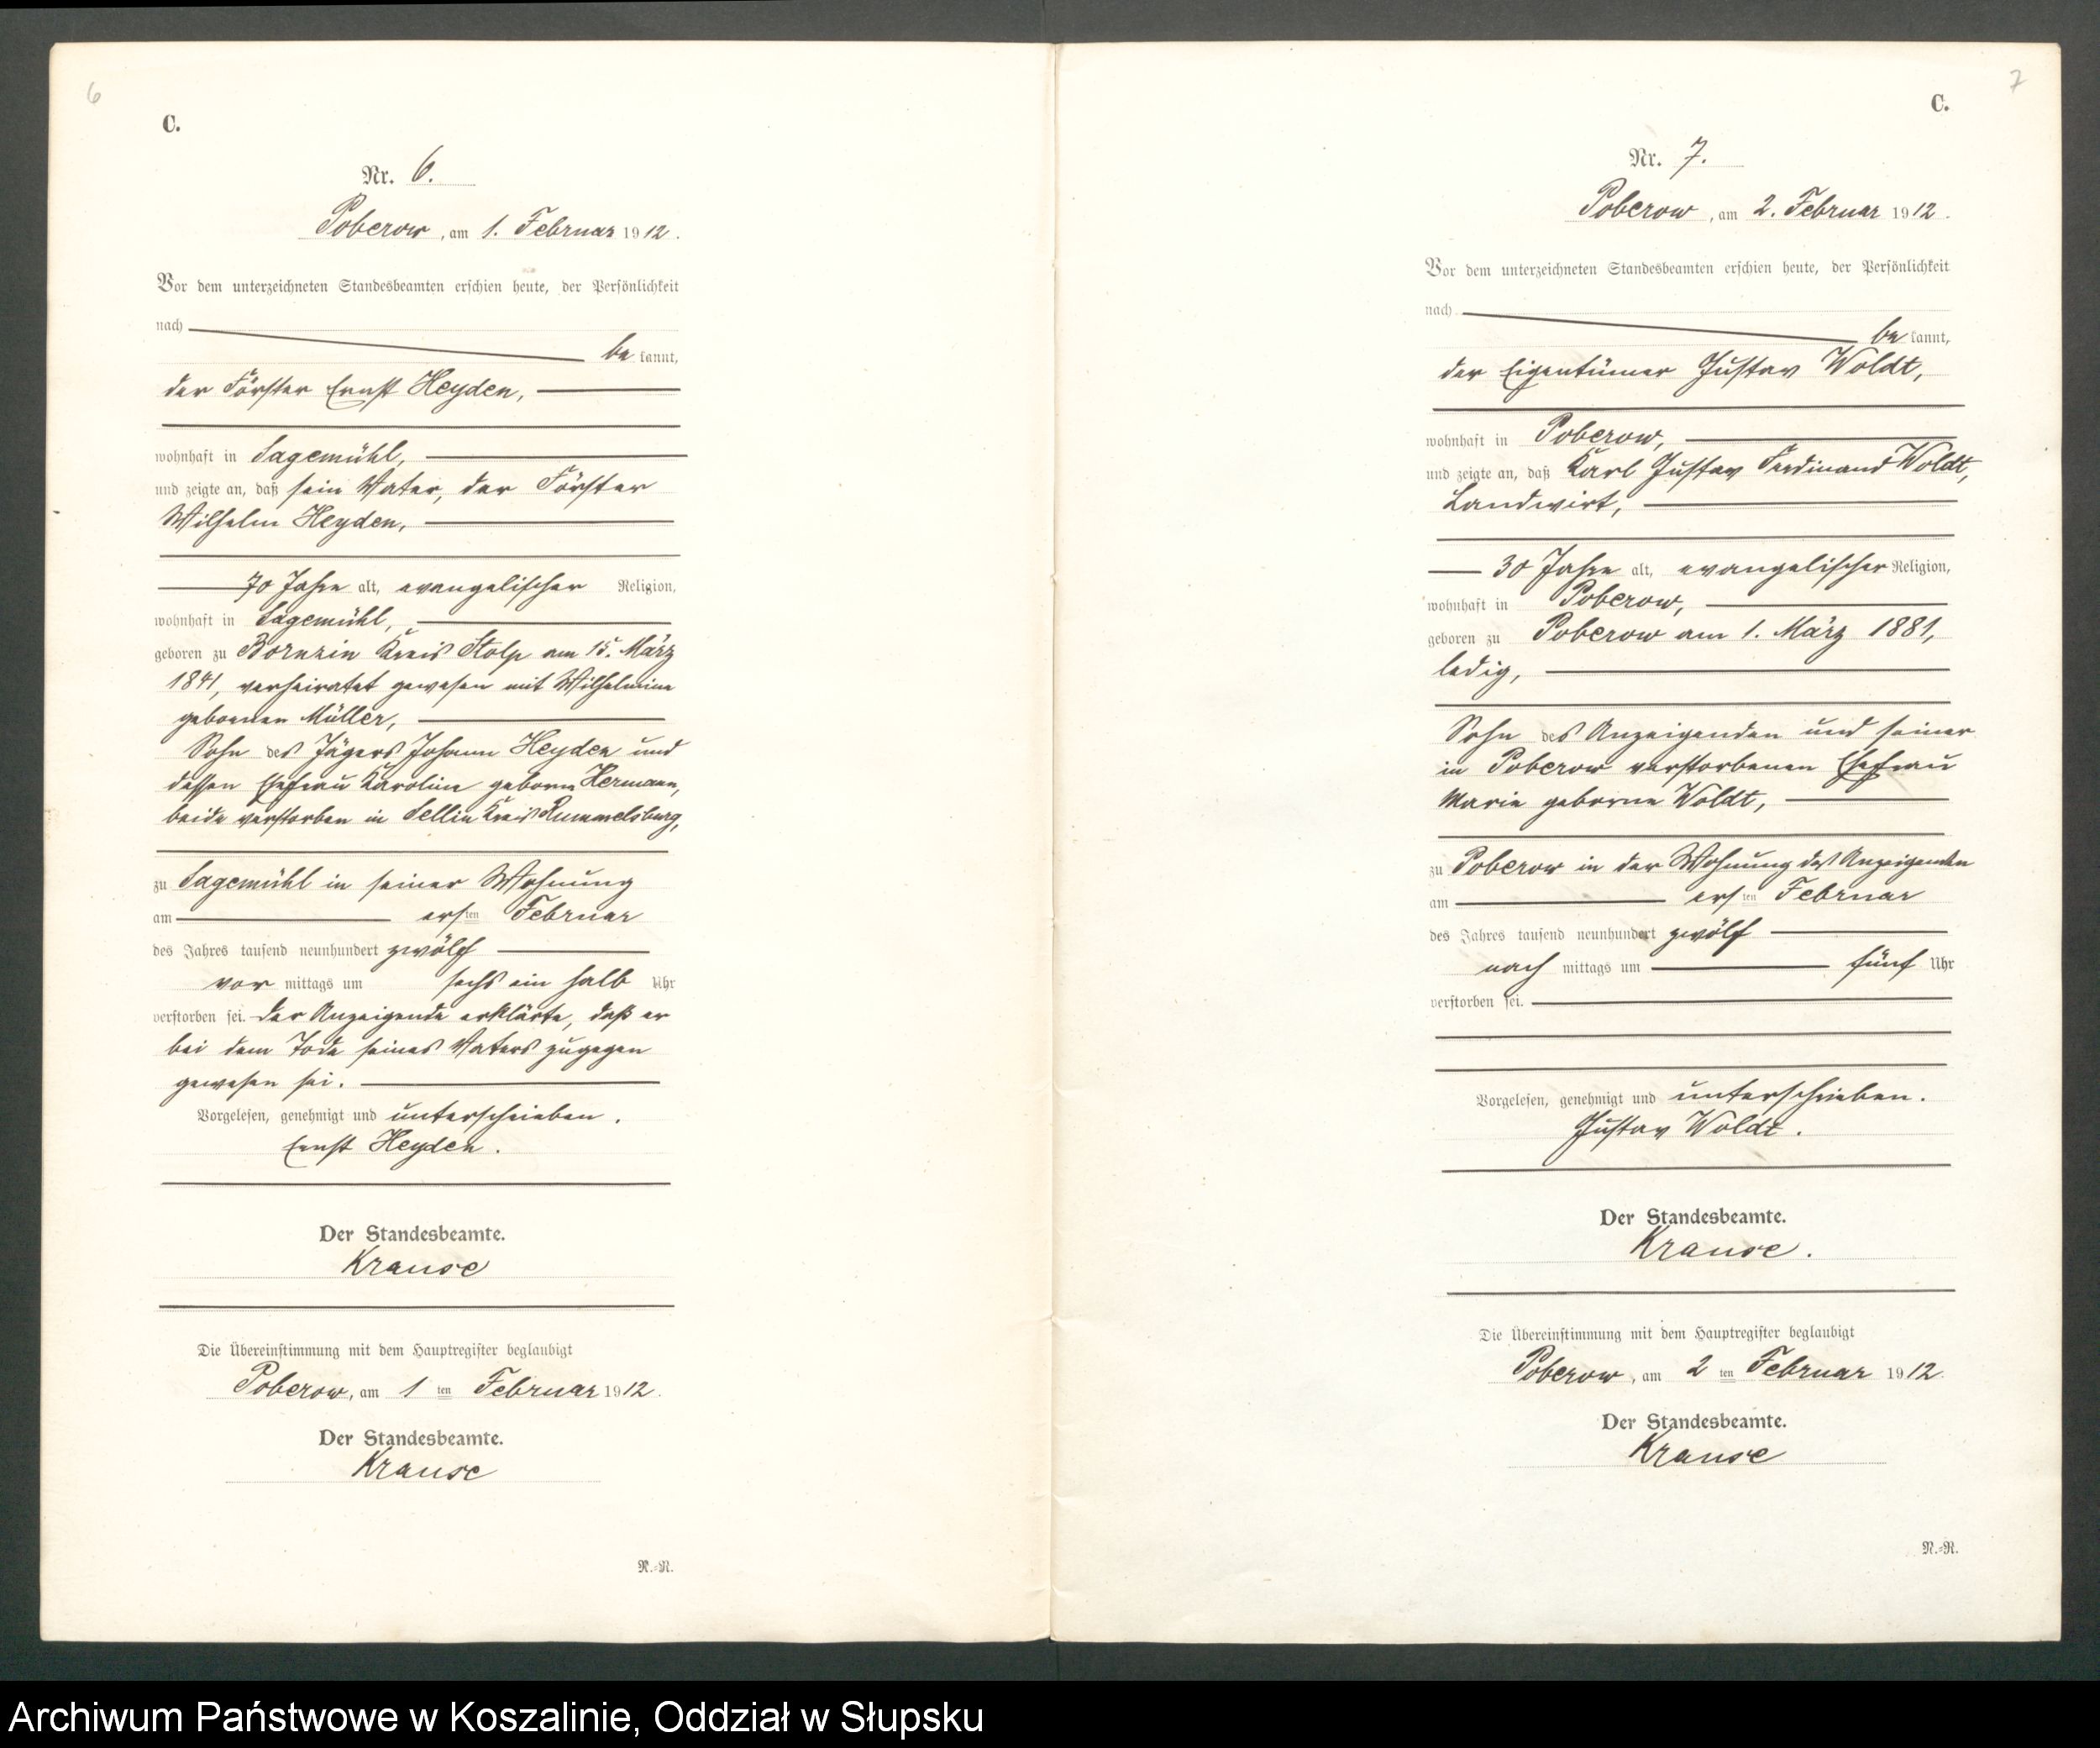 6
C.
Nr. 6.
Poberow, am 1. Februar 1912.
Vor dem unterzeichneten Standesbeamten erschien heute, der Persönlichkeit
nach
be kannt,
der Förster Ernst Heyden,
wohnhaft in Sagemühl,
und zeigte an, daß sein Vater, der Förster
Wilhelm Heyden,
70 Jahre alt, evangelischer Religion,
wohnhaft in Sagemühl,
geboren zu Bornzin Kreis Stolp am 15. März
1841, verheiratet gewesen mit Wilhelmine
geborenen Müller,
Sohn des Jägers Johann Heyden und
dessen Ehefrau Karoline geborne Hermann,
beide verstorben in Sellin Kreis Rummelsburg,
zu Sagemühl in seiner Wohnung
am ersten Februar
des Jahres tausend neunhundert zwölf
vor mittags um sechs ein halb Uhr
verstorben sei. Der Anzeigende erklärte, daß er
bei dem Tode seines Vaters zugegen
gewesen sei.
Vorgelesen, genehmigt und unterschrieben.
Ernst Heyden.
Der Standesbeamte.
Krause
Die Übereinstimmung mit dem Hauptregister beglaubigt
Poberow, am 1 ten Februar 1912.
Der Standesbeamte.
Krause
N.-R.
7
C.
Nr. 7.
Poberow, am 2. Februar 1912.
Vor dem unterzeichneten Standesbeamten erschien heute, der Persönlichkeit
nach
be kannt,
der Eigentümer Gustav Woldt,
wohnhaft in Poberow,
und zeigte an, daß Karl Gustav Ferdinand Woldt,
Landwirt,
30 Jahre alt, evangelischer Religion,
wohnhaft in Poberow,
geboren zu Poberow am 1. März 1881,
ledig,
Sohn des Anzeigenden und seiner
in Poberow verstorbenen Ehefrau
Marie geborne Woldt,
zu Poberow in der Wohnung des Anzeigenden
am ersten Februar
des Jahres tausend neunhundert zwölf
nach mittags um fünf Uhr
verstorben sei.
Vorgelesen, genehmigt und unterschrieben.
Gustav Woldt.
Der Standesbeamte.
Krause.
Die Übereinstimmung mit dem Hauptregister beglaubigt
Poberow, am 2 ten Februar 1912.
Der Standesbeamte.
Krause
N.-R.
Archiwum Państwowe w Koszalinie, Oddział w Słupsku